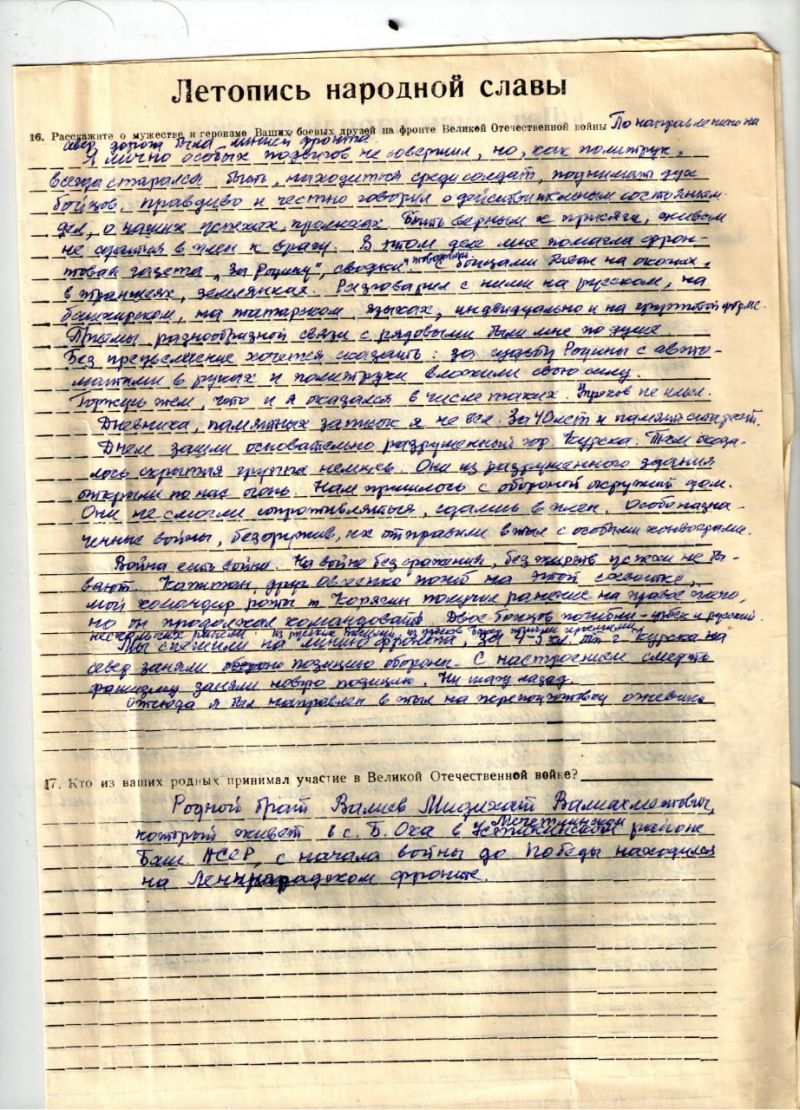 Летопись народной славы
16. Расскажите о мужестве и героизме Ваших боевых друзей на фронте Великой Отечественной войны По направлению на
север дорога была линией фронта.
Я лично особых подвигов не совершил, но, как политрук,
всегда старался быть, находиться среди солдат, поднимать дух
бойцов, правдиво и честно говорил о действительном состоянии
дел, о наших успехах, промахах. Быть верным к присяге, живым
не сдаться в плен к врагу. В этом деле мне помогла фрон-
товая газета „За Родину", сводки. С бойцами на окопах,
в траншеях, землянках. Разговарил с ними на русском, на
башкирском, на татарском языках, индивидуально и на групповой форме.
Приемы разнообразной связи с рядовыми были мне по душе.
Без преувеличение хочется сказать: за честь Родины с авто-
матами в руках и политруки вложили свою силу.
Горжусь тем, что и я оказался в числе таких. Упреков не имел.
Дневника, памятных записок я не вел. За 40 лет и память сдает.
Днем зашли основательно разрушенный гор. Курска. Там оказа-
лось скрытая группа немцев. Они из разрушенного здания
открыли по нас огонь. Нам пришлось с обороной окружить дом.
Они не смогли сопротивляться, сдались в плен. Особоназна-
ченные войны, безоружив, их отправили в тыл с особыми конвоирами.
Война есть война. На войне без сражения, без жертв успехи не бы-
вают. Капитан, друг Овсеенко погиб на этой схватке,
мой командир роты т. Корягин получил ранение на правое плечо,
но он продолжал командовать. Двое бойцов погибли - узбек и русский.
несколько ранены.
Мы спешили на линию фронта, за 4-5 км. от г. Курска на
север заняли позицию обороны. С настроением смерть
фашизму заняли новую позицию. Ни шагу назад.
Отсюда я был направлен в тыл на переподготовку
17. Кто из ваших родных принимал участие в Великой Отечественной войне?
Родной брат Валиев Мидихат Валиахметович,
который живет в с. Б. Ока в Мечетлинском районе
Баш. АССР, с начала войны до Победы находился
на Ленинградском фронте.